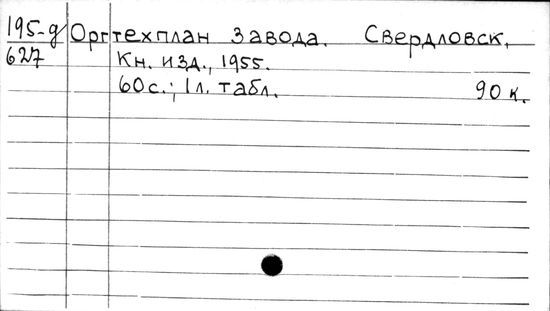 195-д Оргтехплан завода. Свердловск,
627 Кн. изд., 1955.
60 с.; 1 л. табл. 90 к.